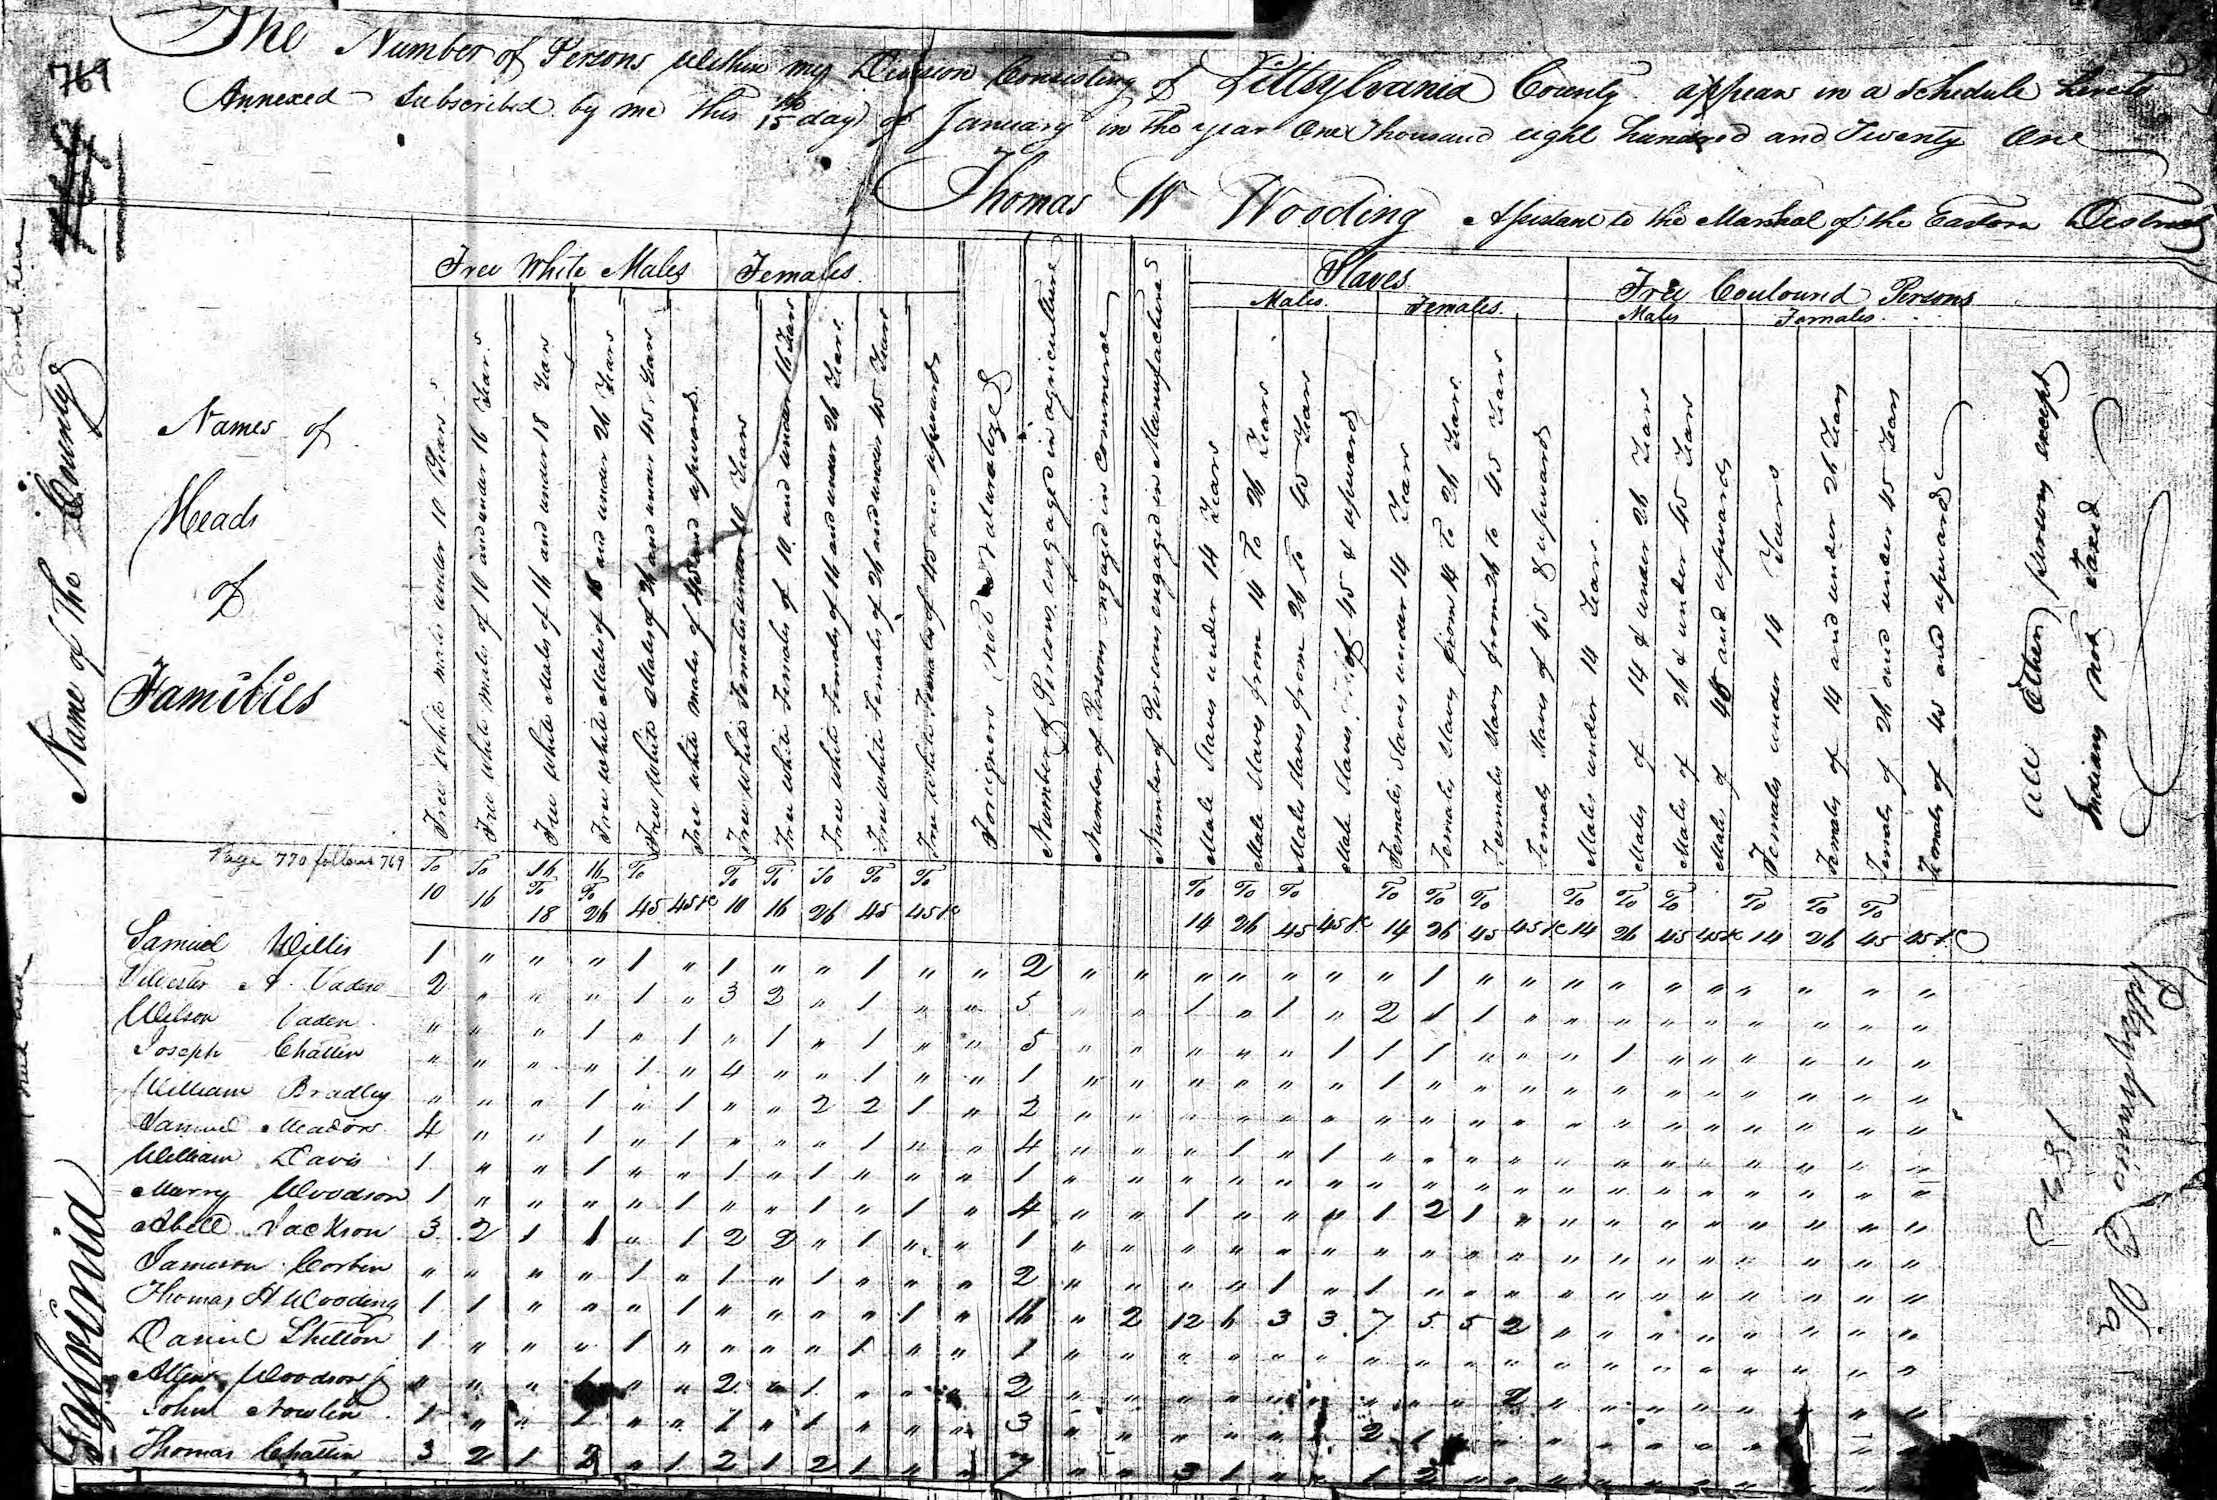 The Number of Persons within my Division Consisting of Pittsylvania County appears in a Schedule hereto
769
Annexed Subscribed by me this 15th day of January in the year One Thousand eight hundred and Twenty One
Thomas W Wooding Assistant to the Marshal of the Eastern District
Free White Males Females
Slaves
Free Couloured Persons
Males. Females.
Males Females.
Name of the County
Names of
Heads
of
Families
Free White males under 10 Years
Free white males of 10 and under 16 Years
Free white Males of 16 and under 18 Years
Free white Males of 16 and under 26 Years
Free White Males of 26 and under 45 Years
Free white males of 45 and upwards
Free White Females under 10 Years
Free white Females of 10 and under 16 Years
Free White Females of 16 and under 26 Years
Free white Females of 26 and under 45 Years
Free White Females of 45 and upwards
Foreigners not Naturalized
Number of Persons engaged in agriculture
Number of Persons engaged in Commerce
Number of Persons engaged in Manufactures
Male Slaves under 14 Years
Male Slaves from 14 to 26 Years
Males Slaves from 26 to 45 Years
Male Slaves of 45 & upwards
Females Slaves under 14 Years
Females Slaves from 14 to 26 Years
Females Slaves from 26 to 45 Years
Female Slaves of 45 & upwards
Males under 14 Years
Males of 14 & under 26 Years
Males of 26 & under 45 Years
Males of 45 and upwards
Females under 14 Years
Females of 14 and under 26 Years
Females of 26 and under 45 Years
Females of 45 and upwards
All Other persons except
Indians not Taxed
Page 770 follows 769
To To 16 16 To To To To To To To To To To To To To To To To To To
10 16 To 18 To 26 45 45&c 10 16 26 45 45&c 14 26 45 45&c 14 26 45 45&c 14 26 45 45&c 14 26 45 45&c
Samuel Willis 1 " " " 1 " 1 " " 1 " " 2 " " " " " " " 1 " " " " " " " " " "
A. Vaden 2 " " " 1 " 3 2 " 1 " " 5 " " 1 " 1 " 2 1 1 " " " " " " " " "
Wilson Vaden " " " 1 " 1 " 1 " 1 " " 5 " " " " " 1 1 1 " " " 1 " " " " " "
Joseph Chattin " " " " 1 " 4 " " 1 " " 1 " " " " " " 1 " " " " " " " " " " "
William Bradley " " " 1 " 1 " " 2 2 1 " 2 " " " " " " " " " " " " " " " " " "
Samuel Meadows 4 " " 1 " 1 " " " 1 " " 4 " " " 1 " 1 " " " " " " " " " " " "
William Davis 1 " " 1 " " 1 " 1 " " " 1 " " " " " " " " " " " " " " " " " "
Murry Woodson 1 " " " " 1 " " 1 " 1 " 4 " " 1 " " " 1 2 1 " " " " " " " " "
Abell Jackson 3 2 1 1 " 1 2 2 " 1 " " 1 " " " " " " " " " " " " " " " " " "
Jameson Corbin " " " " 1 " 1 " 1 " " " 2 " " " " 1 " 1 " " " " " " " " " " "
Thomas H Wooding 1 1 " " " 1 " " " " 1 " 16 " 2 12 6 3 3 7 5 5 2 " " " " " " " "
Daniel Shelton 1 " " " 1 " " " " 1 " " 1 " " " " " " " " " " " " " " " " " "
Woodson " " " 1 " " 2 " 1 " " " 2 " " " " " " " " " 2 " " " " " " " "
John Nowlin 1 " " 1 " " 1 " 1 " " " 3 " " " " " 1 2 1 " " " " " " " " " "
Thomas Chattin 3 2 1 2 " 1 2 1 2 1 " " 7 " " 3 1 " " 1 2 " " " " " " " " " "
Pittsylvania Co Va
1820